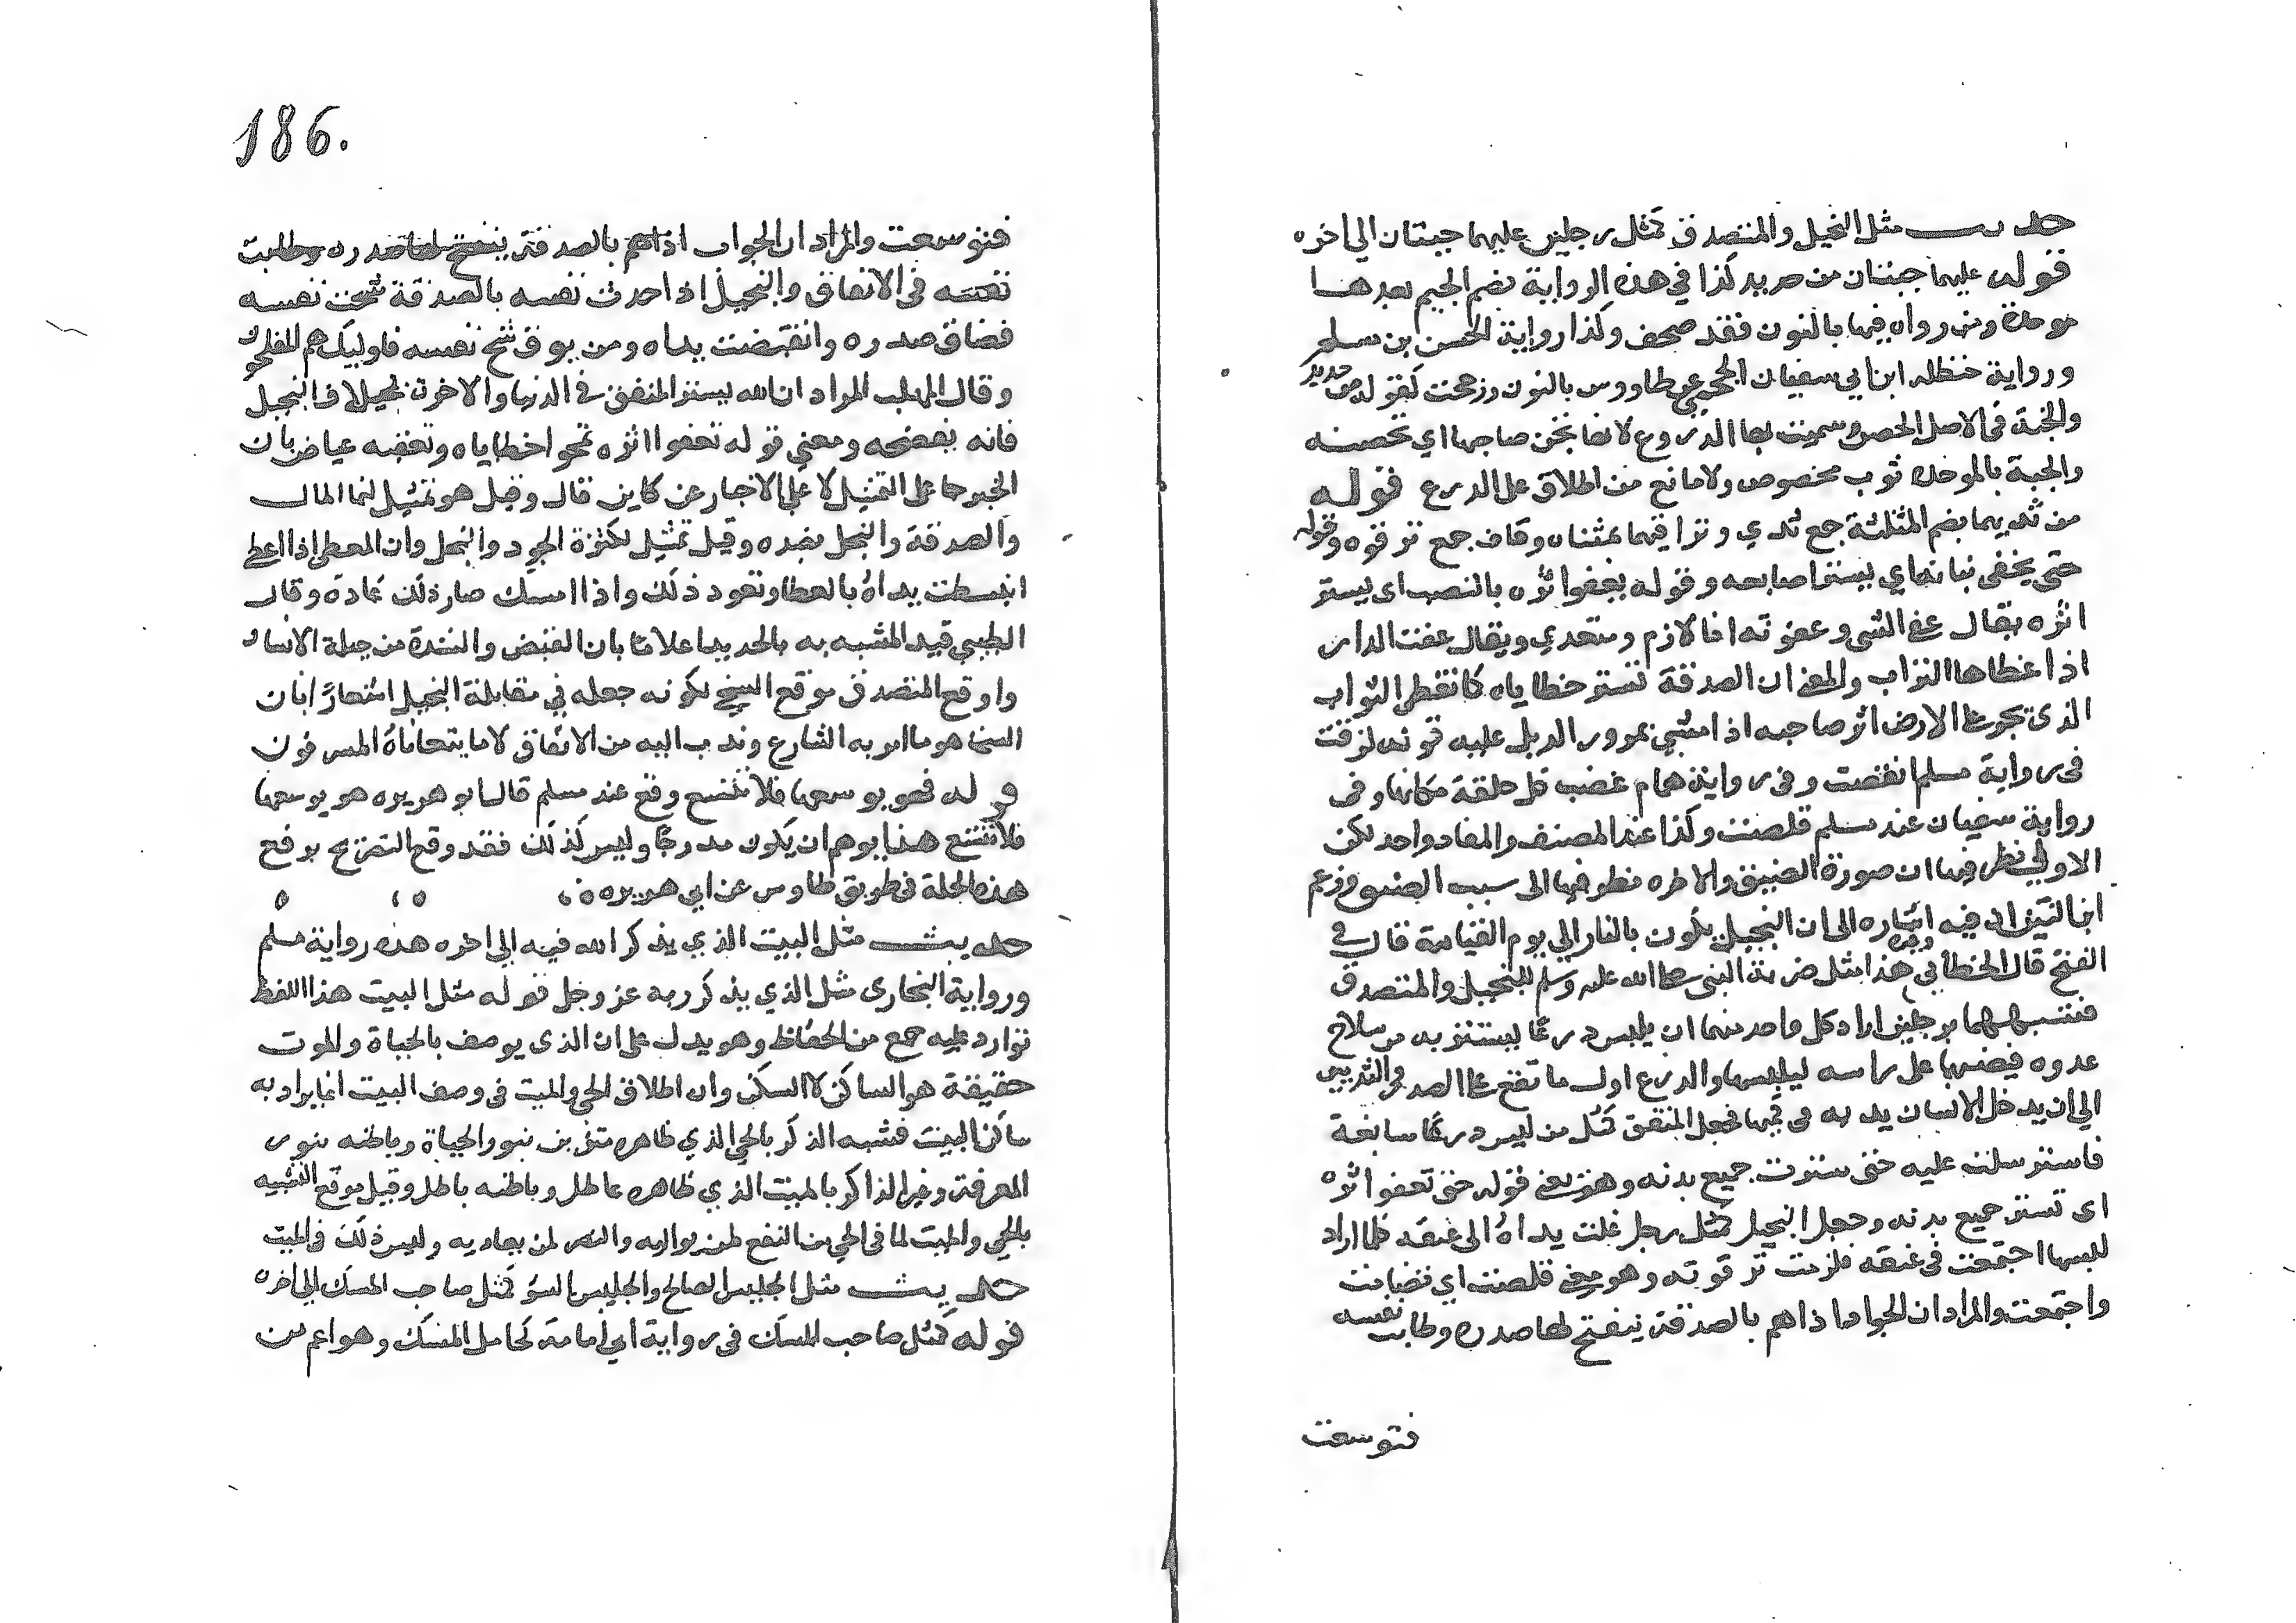 حديث مثل البخيل والمتصدق كمثل رجلين عليهما جبتان الي اخره
قوله عليهما جبتان من حديد كذا في هذه الرواية بضم الجيم بعدها
موحدة ومن رواه فيها بالنون فقد صحف وكذا رواية الحسن بن مسلم
ورواية حنظله ابن ابي سفيان الجمحي عن طاووس بالنون ورجحت لقوله من حديد
والجنة في الاصل الحصن وسميت بها الدروع لانها تجن صاحبها اي تحصنه
والجبة بالموحدة ثوب مخصوص ولا مانع من اطلاق على الدرع قوله
من ثديهما بضم المثلثة جمع ثدي وتراقيهما بمثناه وقاف جمع ترقوه وقوله
حتى يخفى بنانه اي يستر اصابعه وقوله يعفوا اثره بالنصب اي يستر
اثره يقال عفي الشي وعفوته انا لازم ومتعدي ويقال عفت الدار
اذا غطاها التراب والمعنى ان الصدقة تستر خطاياه كما تغطى الثواب
الذي يجر على الارض اثر صاحبه اذا مشي بمرور الذيل عليه قوله لزقت
في رواية مسلم انقبضت وفي رواية همام غضب كل حلقة مكانها وفى
رواية سفيان عند مسلم قلصت وكذا عند المصنف والمفاد واحد لكن
الاولي نظر فيها ان صورة الضيق والاخره نظر فيها الى سبب الضيق وزعم
ابن التين ان فيه اشاره الى ان البخيل يكون بالنار الي يوم القيامة قال في
الفتح قال الخطابي وغيره هذا مثل ضربه النبي صلى الله عليه وسلم للبخيل والمتصدق
فشبههما برجلين اراد كل واحد منهما ان يلبس درعا ليستتر به من سلاح
عدوه فيضعها على راسه ليلبسها والدرع اول ما تقع على الصدر والثديين
الي ان يدخل الانسان يديه في كميها فجعل المنفق كمثل من لبس درعا سابغة
فاسترسلت عليه حتى سترت جميع بدنه وهو معنى قوله حتى تعفوا اثره
اي تستر جميع بدنه وجعل البخيل كمثل رجل غلت يداه الى عنقه كلما اراد
لبسها اجتمعت في عنقه فلزمت ترقوته وهو معنى قلصت اي تضامت
واجتمعت والمراد ان الجواد اذا هم بالصدقة ينفتح لها صدره وطابت نفسه
فتوسعت
186.
فتوسعت والمراد ان الجواب اذا هم بالصدقة ينفتح لها صدره وطابت
نفسه في الانفاق والبخيل اذا حدث نفسه بالصدقة شحت نفسه
فضاق صدره وانقبضت يداه ومن يوق شح نفسه فاوليك هم المفلحون
وقال المهلب المراد ان الله يستر المنفق في الدنيا والاخرة بخلاف البخيل
فانه يفضحه ومعني قوله تعفوا اثره تمحو اخطاياه وتعقبه عياض بان
الخبر جا على التمثيل لا على الاخبار عن كاين قال وقيل هو تمثيل لنما المال
والصدقة والبخل بضده وقيل تمثيل لكثرة الجود والبخل وان المعطى اذا اعطى
انبسطت يداه بالعطا وتعود ذلك واذا امسك صار ذلك عادة وقال
الطيبي قيد المشبه به بالحديد اعلاما بان القبض والشدة من جبلة الانسان
واوقع المتصدق موقع السخي لكونه جعله في مقابلة البخيل اشعارا بان
السخا هو ما امر به الشارع وندب اليه من الانفاق لا ما يتعاناه المسرفون
قوله فهو يوسعها فلا تتسع وقع عند مسلم قال ابو هريره هو يوسعها
فلا تتسع هذا يوهم ان يكون مدرجا وليس كذلك فقد وقع التصريح برفع
هذه الجملة في طريق طاوس عن ابي هريره
حديث مثل البيت الذي يذكر الله فيه الي اخره هذه رواية مسلم
ورواية البخاري مثل الذي يذكر ربه عز وجل قوله مثل البيت هذا اللفظ
توارد عليه جمع من الحفاظ وهو يدل على ان الذي يوصف بالحياة والموت
حقيقة هو الساكن لا السكن وان اطلاق الحي والميت في وصف البيت انما يراد به
ساكن البيت فشبه الذاكر بالحي الذي ظاهره متزين بنور الحياة وباطنه بنور
المعرفة وغير الذاكر بالميت الذي ظاهره عاطل وباطنه باطل وقيل موقع التشبيه
بالحي والميت لما في الحي من النفع لمن يواليه والضر لمن يعاديه وليس ذلك في الميت
حديث مثل الجليس الصالح والجليس السؤ كمثل صاحب المسك الي اخره
قوله كمثل صاحب المسك في رواية ابي امامة كحامل المسك وهو اعم من